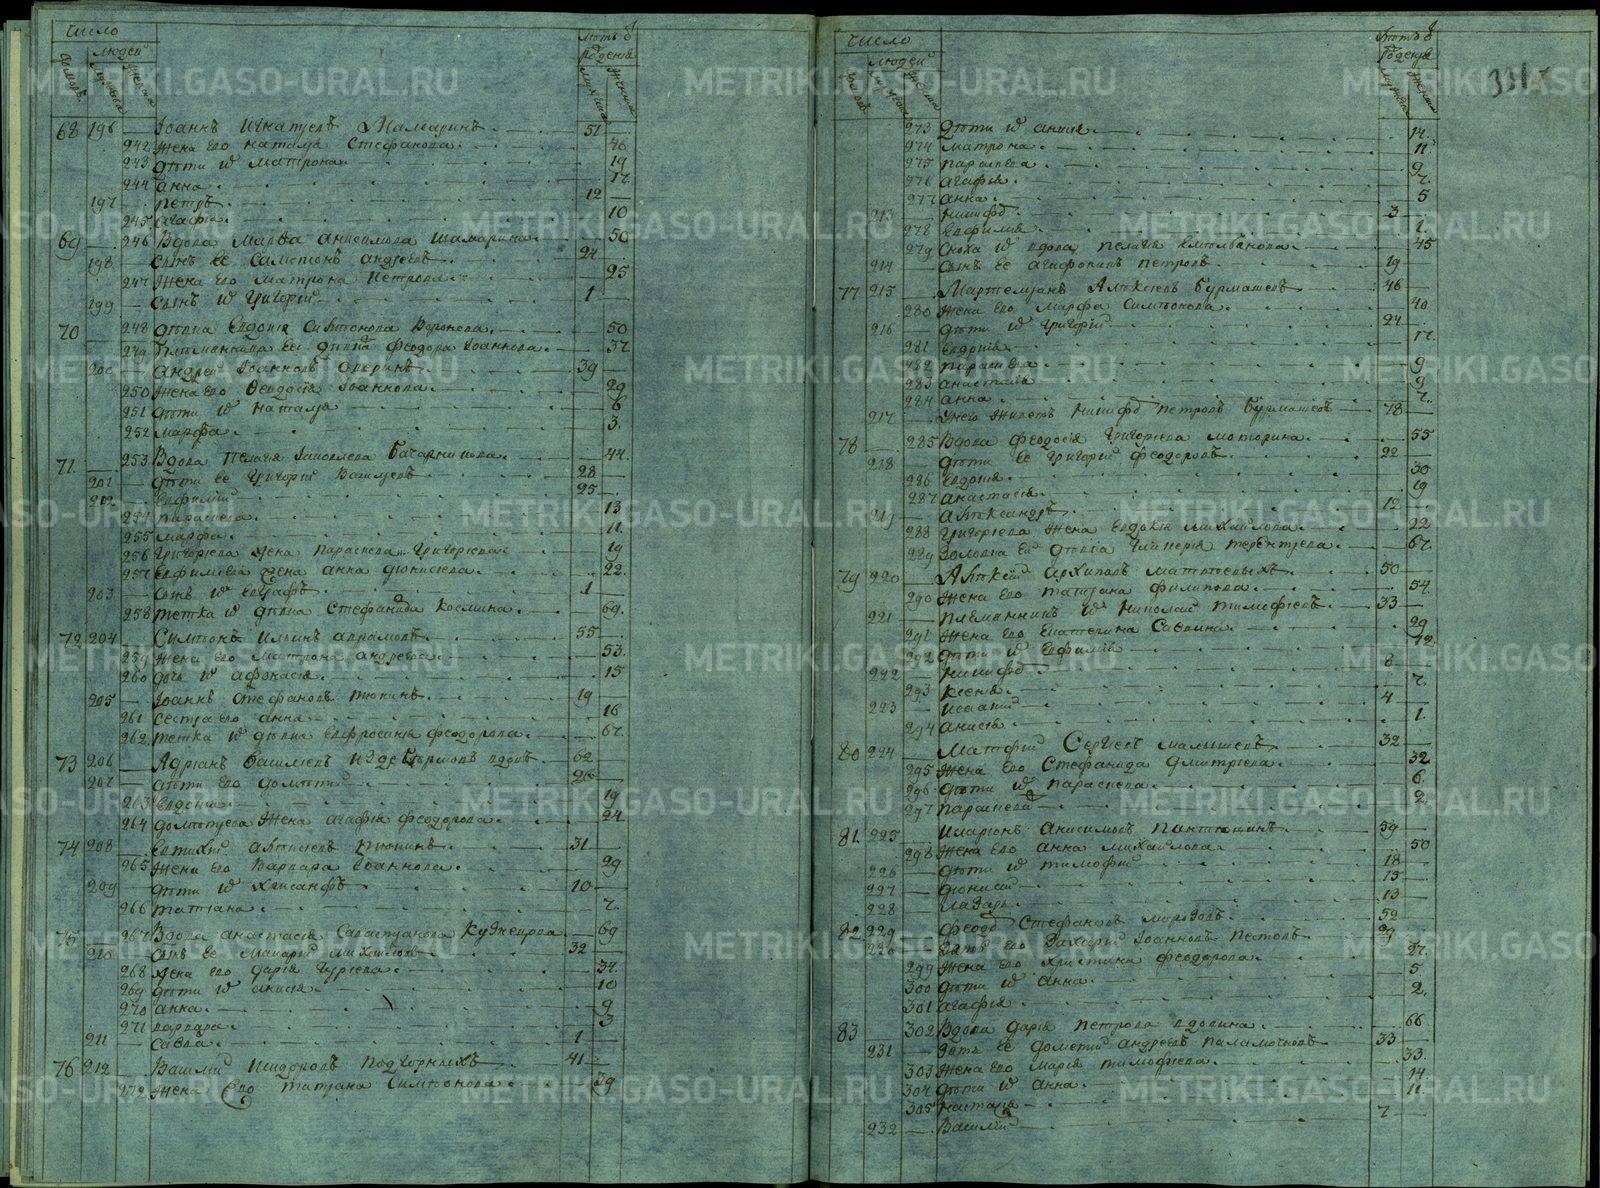 число
людей
лѣтъ ѿ рожденiя
68 196 Iоаннъ Игнатьевъ 51
242 жена его наталья Стефанова 46
243 дѣти их матрона 19
244 анна 17
197 петръ 12
245 агафiя 10
69 246 Вдова Марфа анисимова шамарина 50
198 сынъ ее Самсонъ андреевъ 24
247 жена его матрона петрова 25
199 сынъ их григорiй 1
70 248 дѣвка Евдокiя 50
249 племянница ее дѣвка феодора Iоаннова 37
200 андрей Iоанновъ 39
250 жена его Феодосiя Iоаннова 29
251 дѣти их наталья 6
252 марфа 3
71 253 Вдова пелагiя 44
201 дѣти ее григорiй Васильевъ 28
202 Евфимiй 25
254 параскева 13
255 марфа 11
256 григорьева жена параскева григорьева 19
257 Евфимiева жена анна дiонисiева 22
203 сынъ их 1
258 тетка их дѣвка Стефанида космина 69
72 204 Симеонъ Ильинъ аврамовъ 55
259 жена его матрона андреева 53
260 дочь их афонасiя 15
205 Iоаннъ Стефановъ тюнинъ 19
261 сестра его анна 16
262 тетка их дѣвка Евфросинья феодорова 67
73 206 Адрiанъ Васильевъ вдовъ 62
207 дѣти его дометiй 26
263 Евдокiя 19
264 дометiева жена агафiя феодорова 24
74 208 Евтихiй тюнинъ 31
265 жена его Варвара Iоаннова 29
209 дѣти их Хрисанфъ 10
266 татiана 7
75 267 Вдова анастасiя Севастьянова Кузнецова 69
210 сынъ ее макарiй михайловъ 32
268 жена его дарiя гурьева 37
269 дѣти их анисiя 10
270 анна 9
271 варвара 3
211 савва 1
76 212 Василiй Исидоровъ подгорныхъ 41
272 жена его татьяна Симеонова 39
число
людей
лѣтъ ѿ рожденiя
331
273 дѣти их анисiя 14
274 матрона 11
275 параскева 9
276 агафiя 7
277 анна 5
213 никифоръ 3
278 Евфимiя 1
279 сноха их вдова пелагiя 45
214 сынъ ее агафоникъ петровъ 19
77 215 Мартемьянъ Алексеевъ бурмашевъ 46
280 жена его марфа Симеонова 40
216 дѣти их григорiй 24
281 Евдокiя 17
282 параскева 9
283 анастасiя 9
284 анна 7
217 у него живетъ никифоръ петровъ бурмашевъ 78
78 285 Вдова феодосiя григорьева моторина 55
218 дѣти ее григорiй феодоровъ 22
286 Евдокiя 30
287 анастасiя 19
219 Александръ 12
288 григорьева жена Евдокiя михайлова 22
289 золовка ее дѣвка гликерiя терентьева 67
79 220 Алексѣй архиповъ 50
290 жена его татьяна филипова 54
221 племянникъ их николай тимофеевъ 33
291 жена его Екатерина Саввина 29
292 дѣти их Евфимiя 12
222 никифоръ 8
293 ксенiя 7
223 исаакiй 4
294 анисiя 1
80 224 Матфiй Сергеевъ малышевъ 32
295 жена его Стефанида дмитрiева 32
296 дѣти их параскева 6
297 параскева 2
81 225 Иларiонъ анисимовъ пантюхинъ 59
298 жена его анна михайлова 50
226 дѣти их тимофiй 18
227 дiонисiй 15
228 лазарь 13
82 229 феодоръ Стефановъ морозовъ 52
230 зять его Захарiй Iоанновъ пестовъ 29
299 жена его христина феодорова 27
300 дѣти их анна 5
301 агафiя 2
83 302 Вдова дарiя петрова вдовина 66
231 зять ее дометiй андреевъ паламочновъ 33
303 жена его марiя тимофеева 33
304 дѣти их анна 14
305 наталiя 11
232 Василiй 7
METRIKI.GASO-URAL.RU